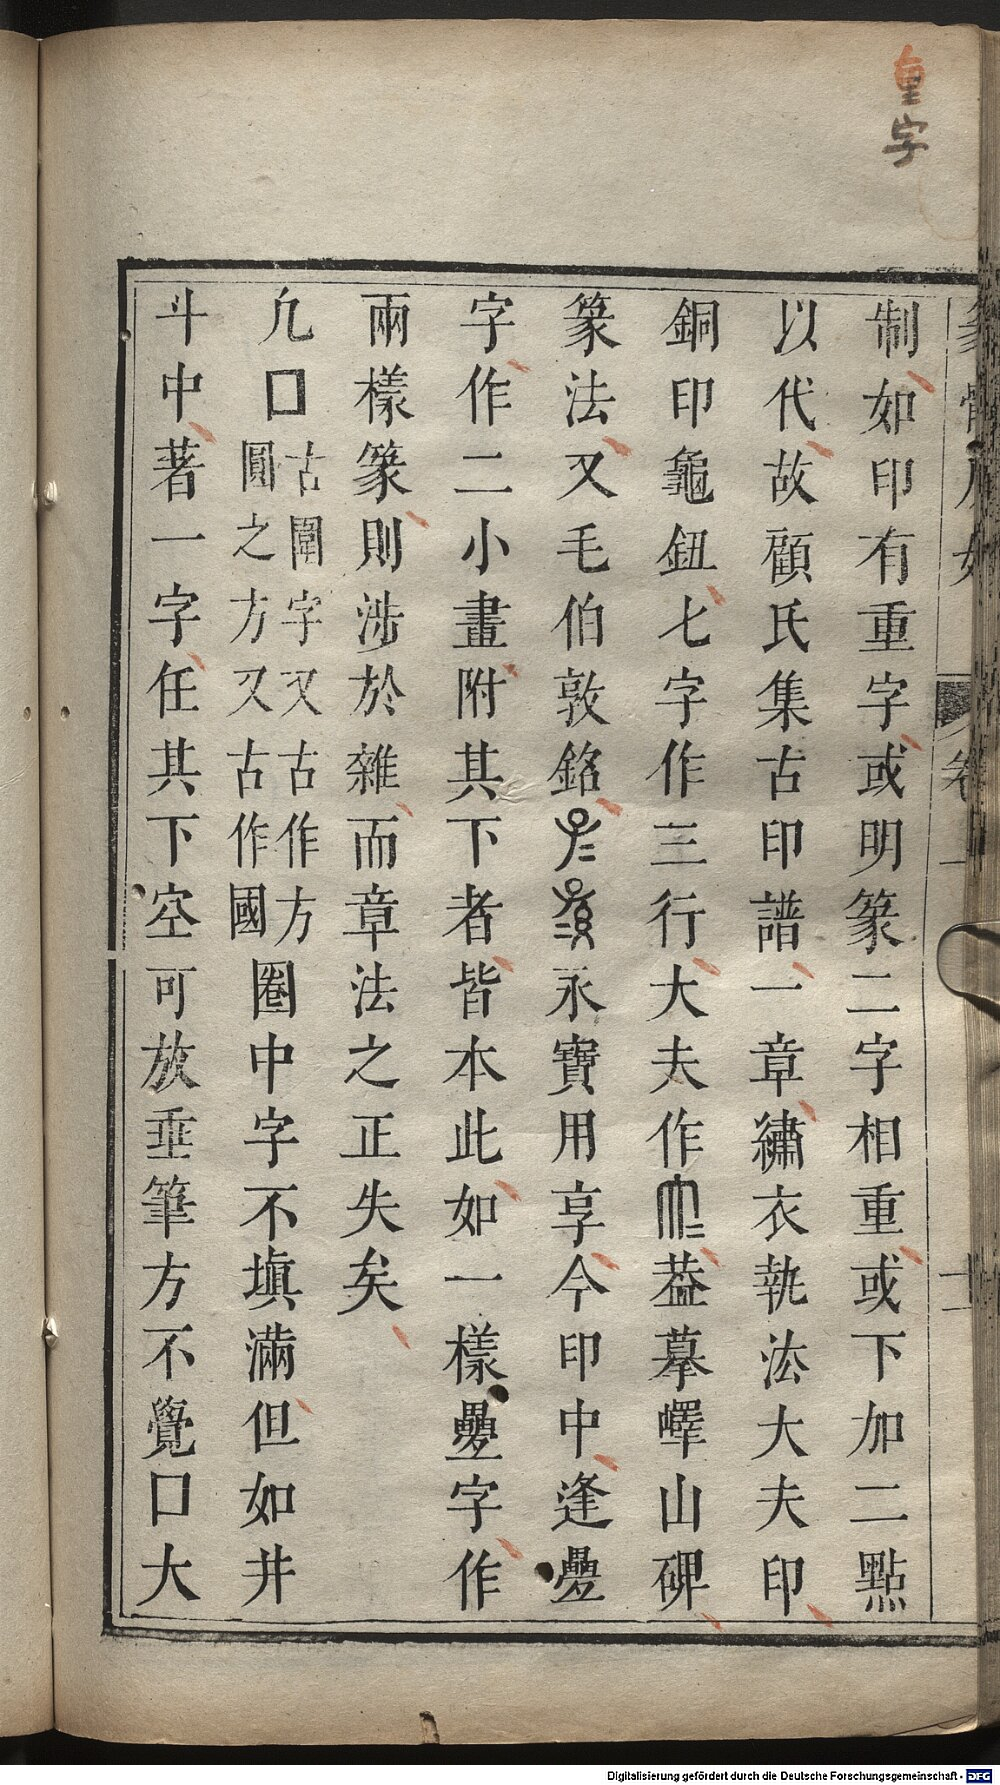 重字
制如印有重字或明篆二字相重或下加二點
以代故顧氏集古印譜一章繡衣執法大夫印
銅印龜鈕七字作三行大夫作葢摹嶧山碑
篆法又毛伯敦銘永寶用享今印中逢疊
字作二小畫附其下者皆本此如一樣疊字作
兩樣篆則涉於雜而章法之正失矣
凢囗古圍字又古作方圓之方又古作國圈中字不塡滿但如井
斗中著一字任其下空可放垂筆方不覺口大
卷一
十二
Digitalisierung gefördert durch die Deutsche Forschungsgemeinschaft - DFG